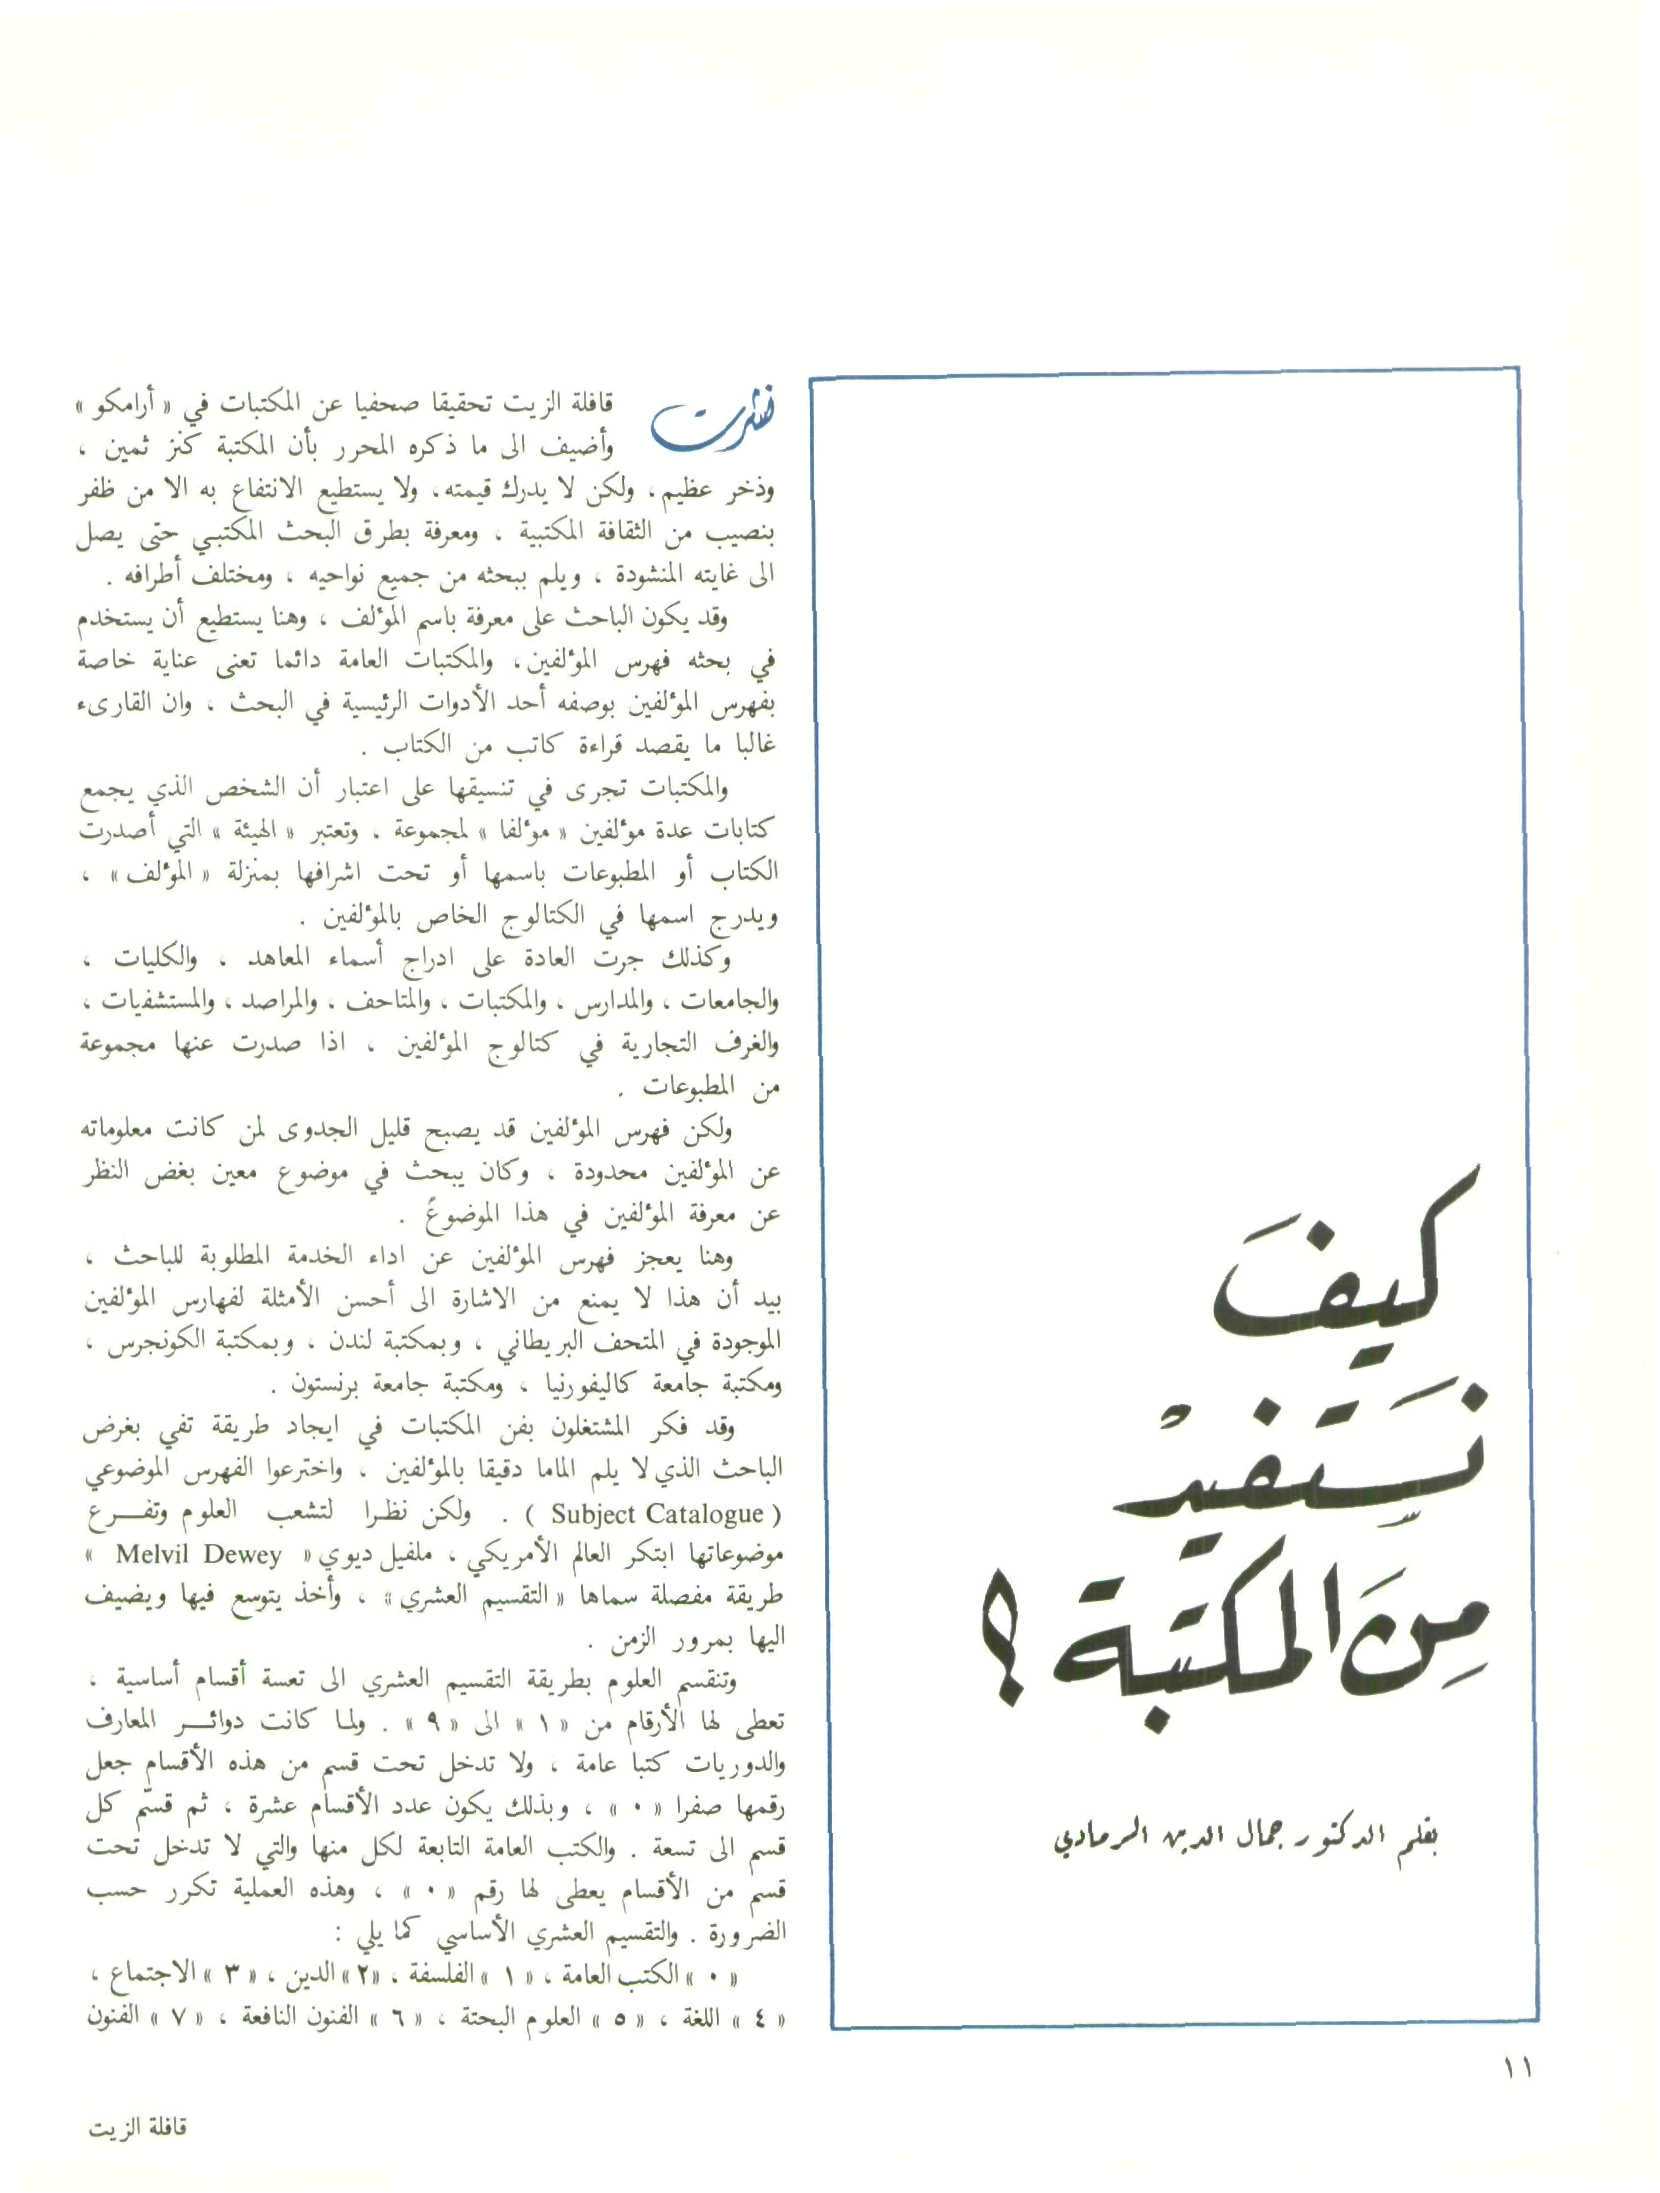 كيفَ
نسَتفيدْ
مِنَ المكتبة ؟
بقلم الدكتور جمال الدين الرمادي
نشرت قافلة الزيت تحقيقا صحفيا عن المكتبات في « أرامكو »
وأضيف الى ما ذكره المحرر بأن المكتبة كنز ثمين ،
وذخر عظيم، ولكن لا يدرك قيمته، ولا يستطيع الانتفاع به الا من ظفر
بنصيب من الثقافة المكتبية ، ومعرفة بطرق البحث المكتبي حتى يصل
الى غايته المنشودة ، ويلم ببحثه من جميع نواحيه ، ومختلف أطرافه .
وقد يكون الباحث على معرفة باسم المؤلف ، وهنا يستطيع أن يستخدم
في بحثه فهرس المؤلفين، والمكتبات العامة دائما تعنى عناية خاصة
بفهرس المؤلفين بوصفه أحد الأدوات الرئيسية في البحث ، وان القارىء
غالبا ما يقصد قراءة كاتب من الكتاب .
والمكتبات تجرى في تنسيقها على اعتبار أن الشخص الذي يجمع
كتابات عدة مؤلفين « مؤلفا » لمجموعة . وتعتبر « الهيئة » التي أصدرت
الكتاب أو المطبوعات باسمها أو تحت اشرافها بمنزلة « المؤلف » ،
ويدرج اسمها في الكتالوج الخاص بالمؤلفين .
وكذلك جرت العادة على ادراج أسماء المعاهد ، والكليات ،
والجامعات ، والمدارس ، والمكتبات ، والمتاحف ، والمراصد ، والمستشفيات ،
والغرف التجارية في كتالوج المؤلفين ، اذا صدرت عنها مجموعة
من المطبوعات .
ولكن فهرس المؤلفين قد يصبح قليل الجدوى لمن كانت معلوماته
عن المؤلفين محدودة ، وكان يبحث في موضوع معين بغض النظر
عن معرفة المؤلفين في هذا الموضوع .
وهنا يعجز فهرس المؤلفين عن اداء الخدمة المطلوبة للباحث ،
بيد أن هذا لا يمنع من الاشارة الى أحسن الأمثلة لفهارس المؤلفين
الموجودة في المتحف البريطاني ، وبمكتبة لندن ، وبمكتبة الكونجرس ،
ومكتبة جامعة كاليفورنيا ، ومكتبة جامعة برنستون .
وقد فكر المشتغلون بفن المكتبات في ايجاد طريقة تفي بغرض
الباحث الذي لا يلم الماما دقيقا بالمؤلفين ، واخترعوا الفهرس الموضوعي
( Subject Catalogue ) . ولكن نظرا لتشعب العلوم وتفـرع
موضوعاتها ابتكر العالم الأمريكي ، ملفيل ديوي « Melvil Dewey »
طريقة مفصلة سماها « التقسيم العشري » ، وأخذ يتوسع فيها ويضيف
اليها بمرور الزمن .
وتنقسم العلوم بطريقة التقسيم العشري الى تعسة أقسام أساسية ،
تعطى لها الأرقام من « ١ » الى « ٩ » . ولما كانت دوائـر المعارف
والدوريات كتبا عامة ، ولا تدخل تحت قسم من هذه الأقسام جعل
رقمها صفرا « ٠ » ، وبذلك يكون عدد الأقسام عشرة ، ثم قسّم كل
قسم الى تسعة . والكتب العامة التابعة لكل منها والتي لا تدخل تحت
قسم من الأقسام يعطى لها رقم « ٠ » ، وهذه العملية تكرر حسب
الضرورة . والتقسيم العشري الأساسي كما يلي :
« ٠ » الكتب العامة ، « ١ » الفلسفة ، «٢» الدين ، « ٣ » الاجتماع ،
« ٤ » اللغة ، « ٥ » العلوم البحتة ، « ٦ » الفنون النافعة ، « ٧ » الفنون
١١
قافلة الزيت